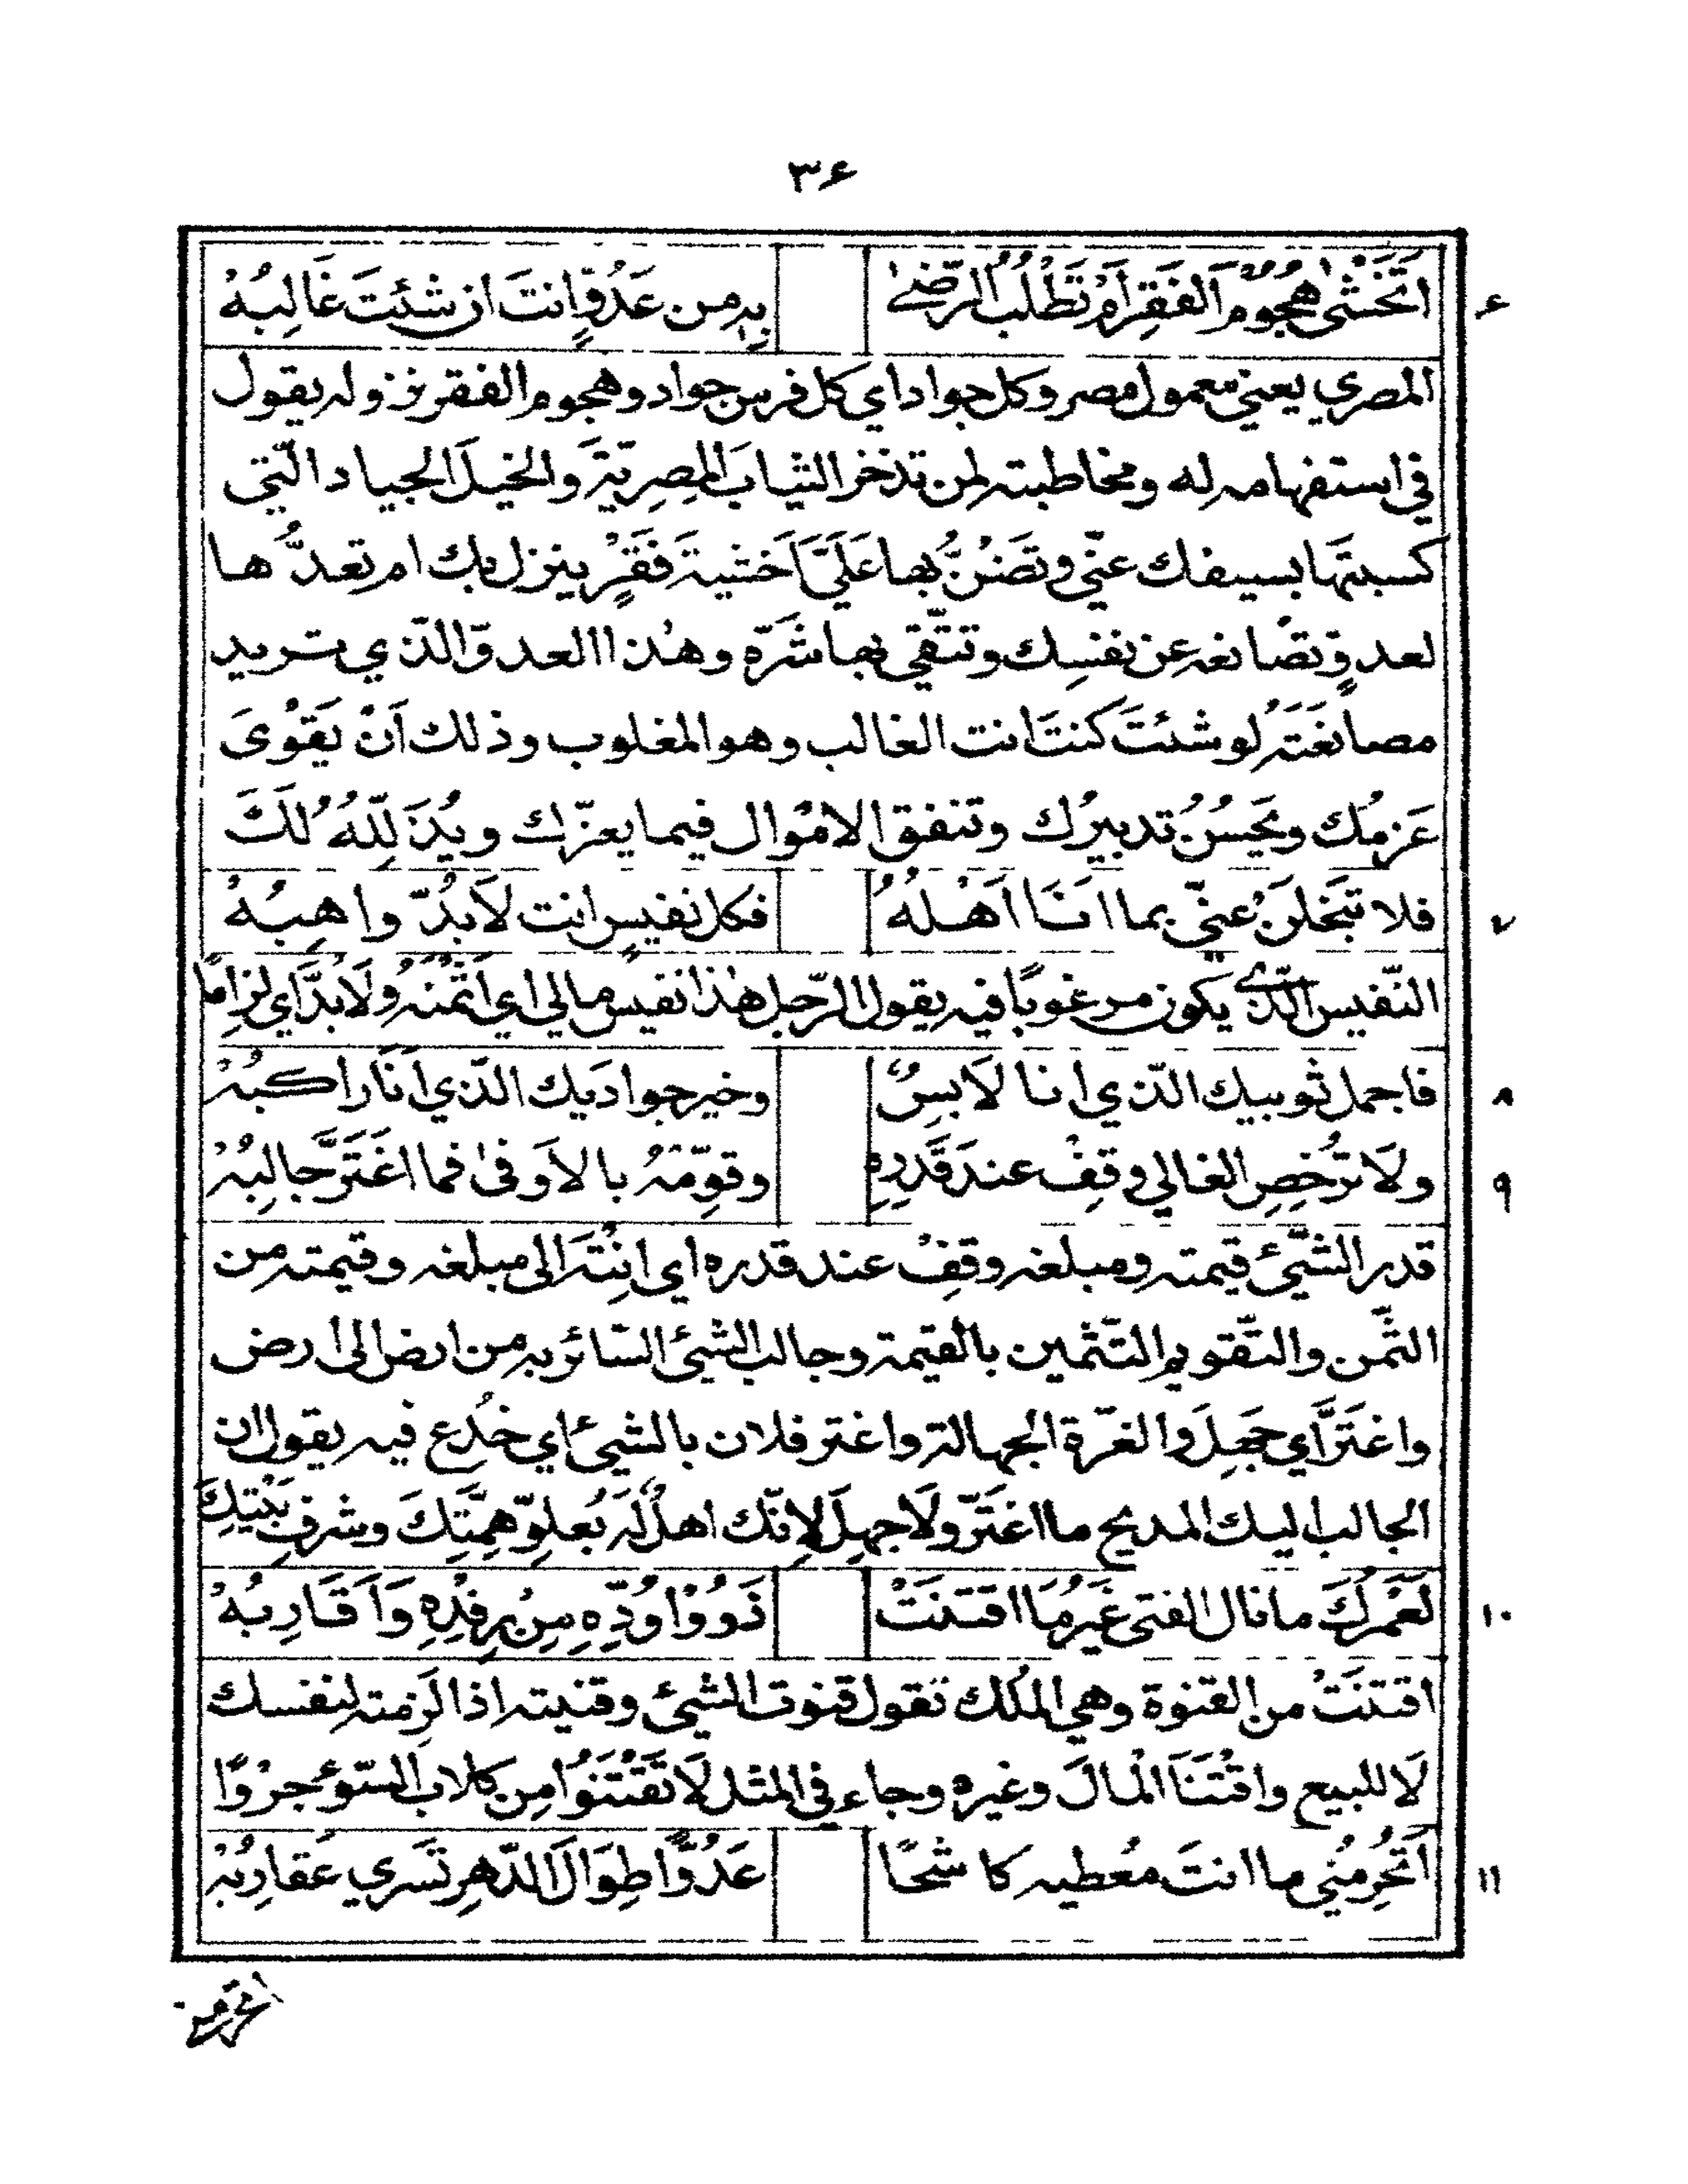 ٣۶
۶ اَتَخْشٰى هُجُومَ الفَقرِ اَمْ تَطْلُبُ الرّضٰى بِهِ مِن عَدُوٍّ انتَ ان شئتَ غَالِبُهْ
المصري يعني معمول مصر وكل جواد اي كل فرس جواد وهجوم الفقر نزوله يقول
في استفهامه له ومخاطبته لمن تذخر الثيابَ المصرِيّةَ والخيلَ الجياد الّتي
كسبتَها بسيفك عنّي وتضَنُّ بها عَلَيَّ اَخشيةَ فَقرٍ ينزل بك ام تعدُّها
لعدوٍّ تصانعه عن نفسِك وتتّقي بها شرّه وهٰذا العدوّ الّذي تريد
مصانعَتَه لو شئتَ كنتَ انت الغالب وهو المغلوب وذلك اَنْ يَقْوىَ
عَزمُك ويَحسُنُ تدبيرُك وتنفق الاموال فيما يعزّك ويُذلِّلُهُ لَكَ
٧ فلا تبخَلَنْ عنّي بما اَنَا اَهْلُهُ فكل نفيسٍ انت لاَبُدّ واهِبُهْ
النّفيس الّذي يكون مرغوبًا فيه يقول الرّجل هٰذا نفيس مالي اي اَثمنه ولَابدّ اي لزامًا
٨ فاجمل ثوبيك الّذي انا لاَبسٌ وخير جوادَيك الّذي اَنَا راكبُهْ
٩ ولاَ ترُخصِ الغالي وقِفْ عندَ قَدرِهِ وقوِّمْهُ بالاَوفىٰ فما اغتَرَّ جالِبُهْ
قدر الشّيئ قيمته ومبلغه وقِفْ عند قدره اي انتَهِ الى مبلغه وقيمته من
الثّمن والتّقويم التّثمين بالقيمة وجالب الشيئ السّائر به من ارض الى ارض
واغتَرَّ اي جَهِلَ والغرّة الجهالة واغتر فلان بالشيئ اي خُدع فيه يقول ان
الجالب اليك المديح ما اغتَرّ ولَا جهِلَ لِانّك اهلٌ لَه بعلوِّ هِمّتِكَ وشرفِ بَيْتِكَ
١٠ لَعَمْرُكَ ما نال الفتى غَيرُ مَا اقتنَتْ ذَوُوْا وُدِّهِ مِنْ رِفْدِهِ وَاَقَارِبُهْ
اقتنَتْ من القنوة وهي المُلك تقول قنوت الشيئ وقنيته اذا لَزمته لنفسك
لاَ للبيع واقْتَنَا الْمالَ وغيره وجاء في المثل لاَ تَقْتَنُوا مِن كلابِ السّوءِ جرْوًا
١١ اَتَحْرِمُني ما انتَ مُعطيه كاشحًا عَدُوًّا طِوَالَ الدّهرِ تَسري عَقارِبُهْ